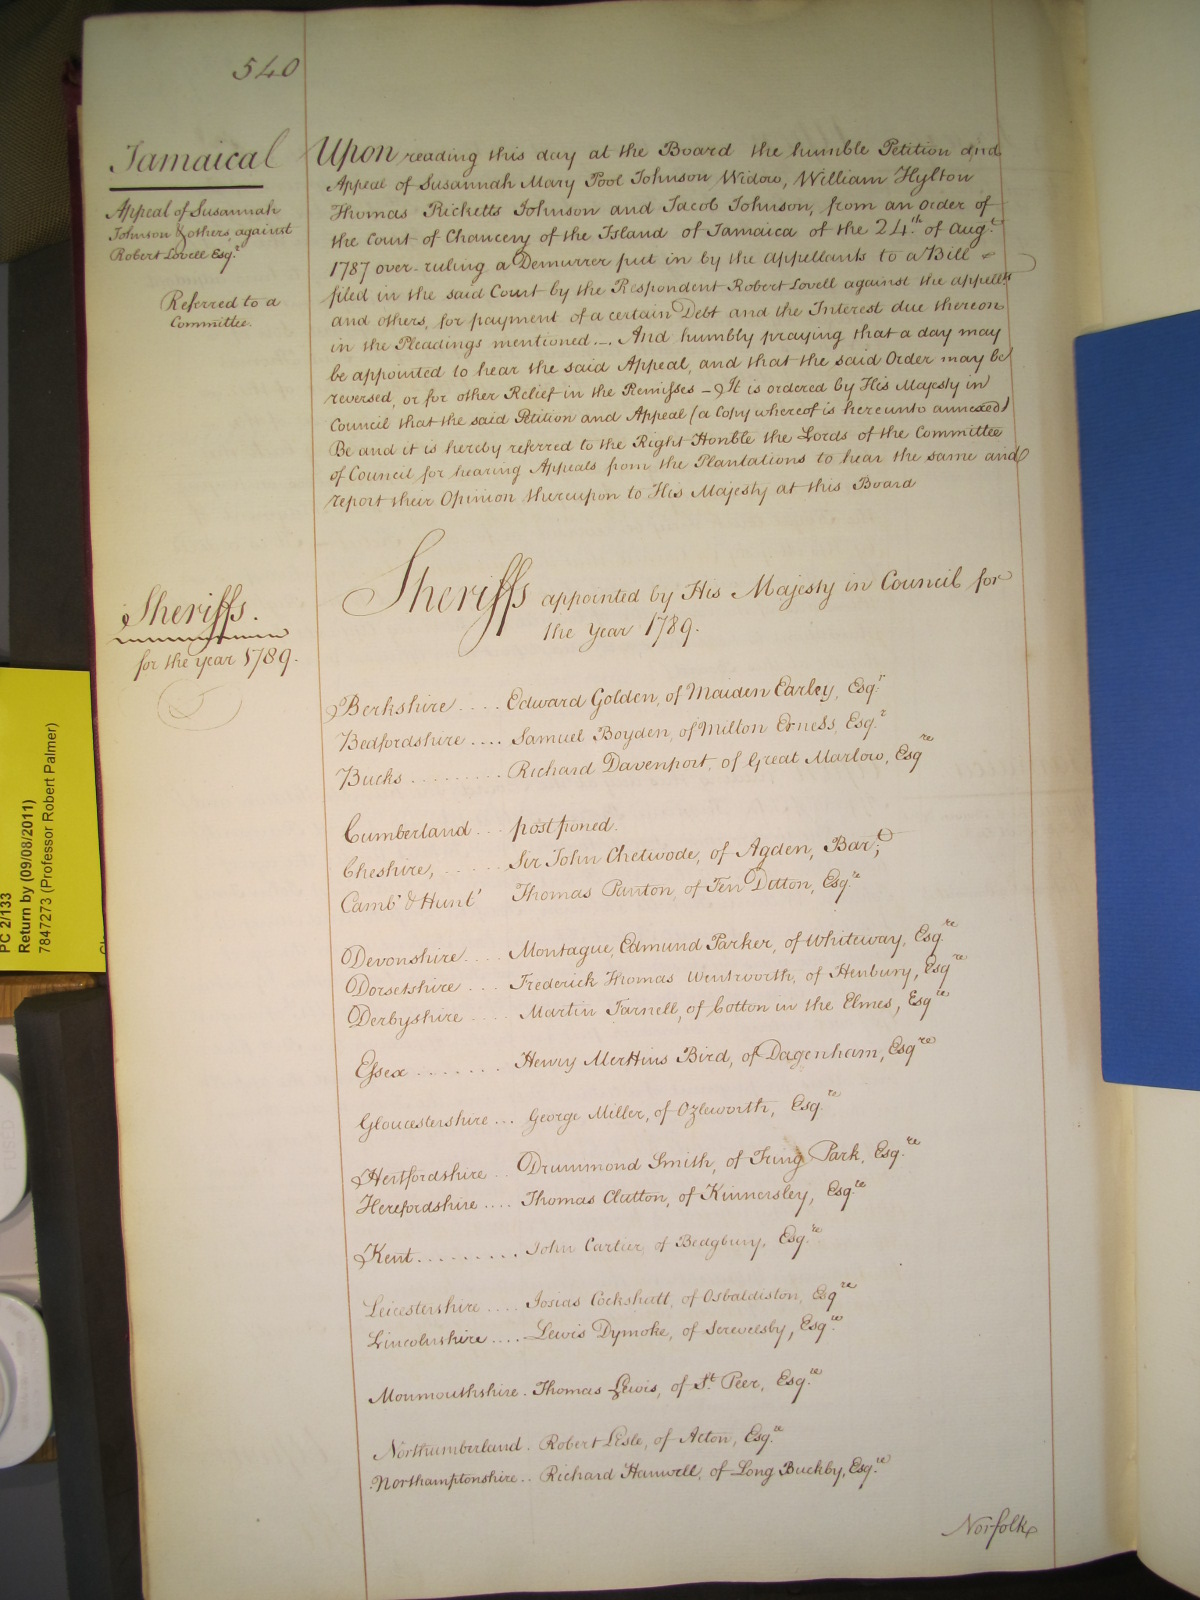 540
Jamaica
Appeal of Susannah
Johnson & others, against
Robert Lovell Esqr.
Referred to a
Committee.
Upon reading this day at the Board the humble Petition and
Appeal of Susannah Mary Pool Johnson Widow, William Hylton
Thomas Ricketts Johnson and Jacob Johnson, from an order of
the Court of Chancery of the Island of Jamaica of the 24th. of Augt.
1787 over-ruling a Demurrer put in by the appellants to a Bill
filed in the said Court by the Respondent Robert Lovell against the appellts
and others, for payment of a certain Debt and the Interest due thereon
in the Pleadings mentioned. And humbly praying that a day may
be appointed to hear the said Appeal, and that the said Order may be
reversed, or for other Relief in the Remisses - It is ordered by His Majesty in
Council that the said Petition and Appeal (a Copy whereof is hereunto annexed)
Be and it is hereby referred to the Right Honble the Lords of the Committee
of Council for hearing Appeals from the Plantations to hear the same and
report their Opinion thereupon to His Majesty at this Board
Sheriffs.
for the year 1789.
Sheriffs appointed by His Majesty in Council for
the Year 1789.
Berkshire .... Edward Golden, of Maiden Earley, Esqr.
Bedfordshire .... Samuel Boyden, of Milton Erness, Esqr.
Bucks ......... Richard Davenport, of Great Marlow, Esqre
Cumberland ... postponed.
Cheshire, ...... Sir John Chetwode, of Agden, Bart;
Camb' & Hunt' Thomas Panton, of Fen Ditton, Esqre.
Devonshire .... Montague Edmund Parker, of Whiteway, Esqre.
Dorsetshire .... Frederick Thomas Wentworth, of Henbury, Esqre
Derbyshire .... Martin Farnell, of Cotton in the Elmes, Esqre
Essex ....... Henry Merttins Bird, of Dagenham, Esqre
Gloucestershire ... George Miller, of Ozleworth, Esqre.
Hertfordshire ... Drummond Smith, of Tring Park, Esqre.
Herefordshire .... Thomas Clutton, of Kinnersley, Esqre.
Kent ......... John Cartier of Bedgbury, Esqre.
Leicestershire .... Josias Cockshutt, of Osbaldiston, Esqre
Lincolnshire .... Lewis Dymoke, of Screvelsby, Esqre.
Monmouthshire . Thomas Lewis, of St. Peer, Esqre.
Northumberland . Robert Lisle, of Acton, Esqre.
Northamptonshire .. Richard Hanwell, of Long Buckby, Esqre.
Norfolk
PC 2/133
Return by (09/08/2011)
7847273 (Professor Robert Palmer)